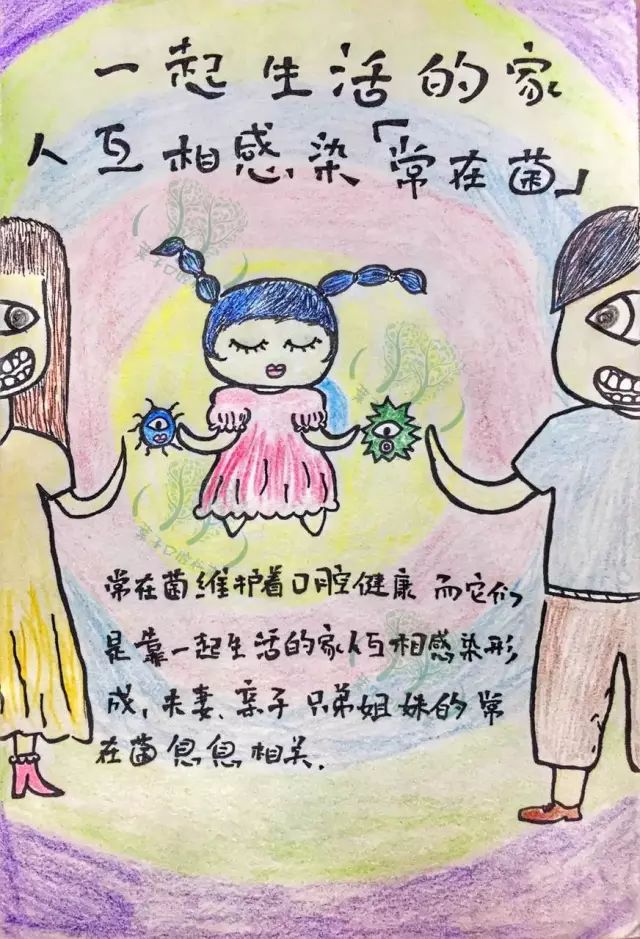 一起生活的家
人互相感染「常在菌」
常在菌维护着口腔健康 而它们
是靠一起生活的家人互相感染形
成，夫妻、亲子 兄弟姐妹的常
在菌息息相关.